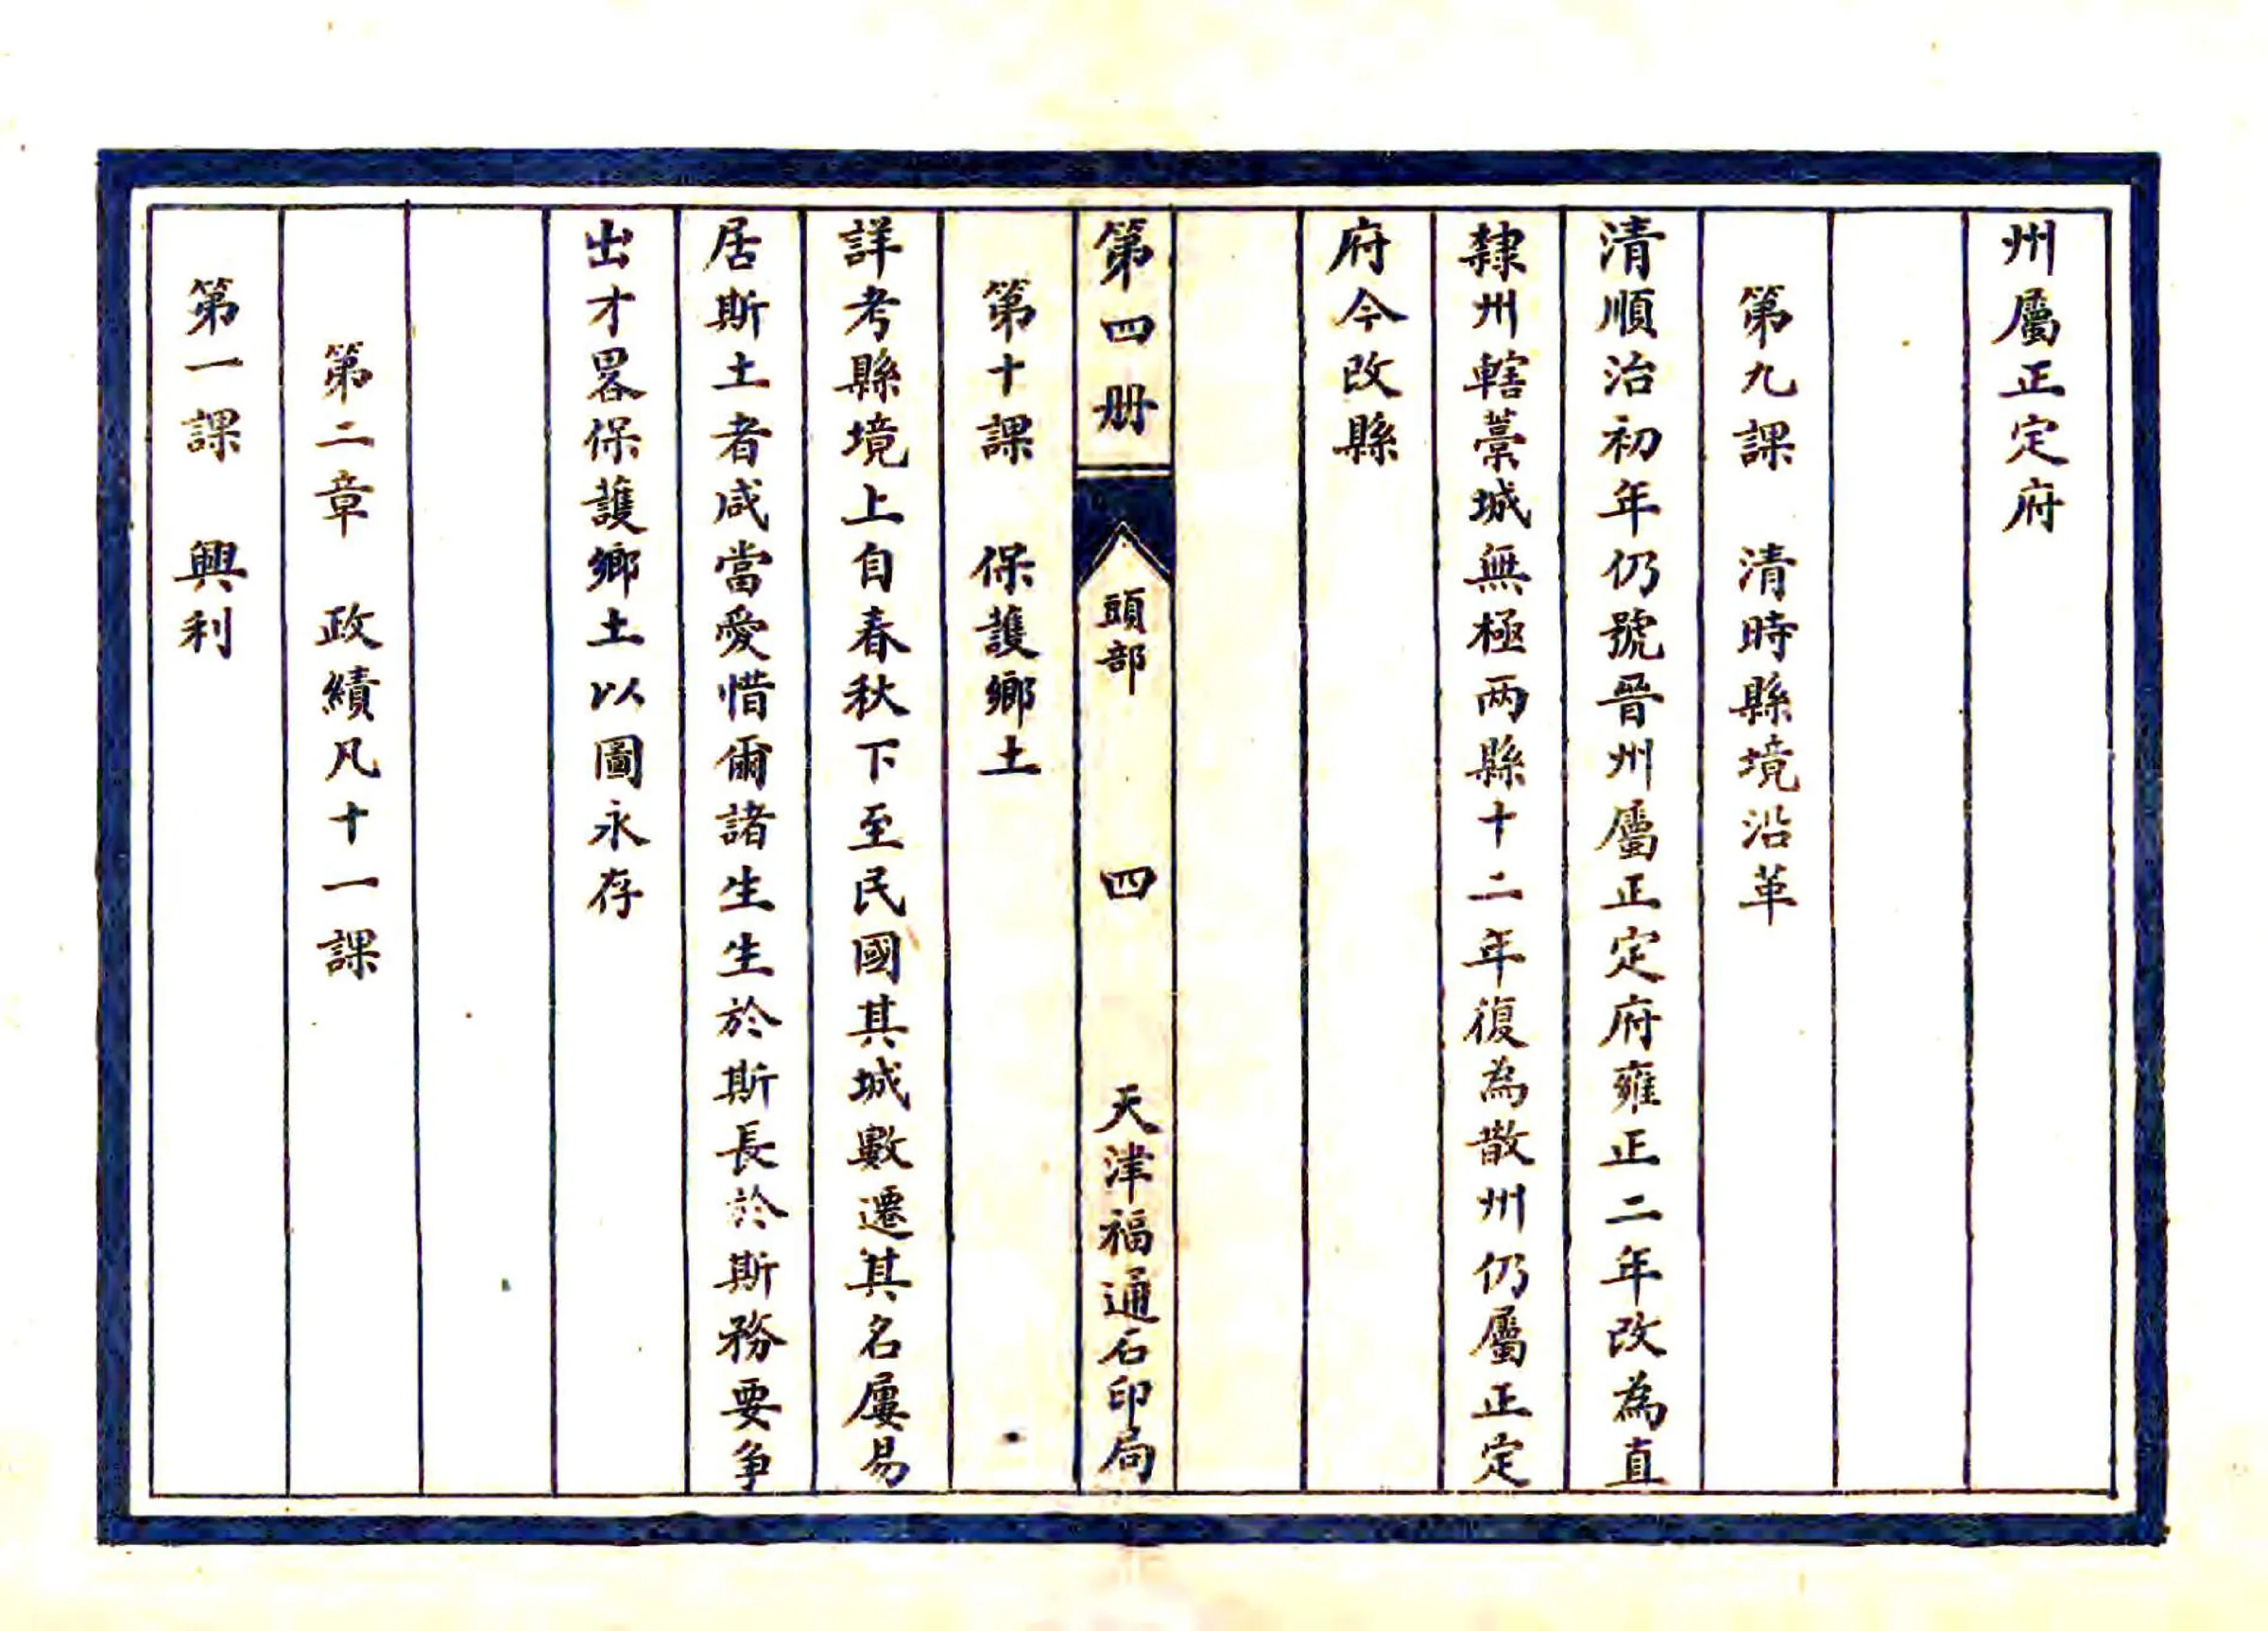 州屬正定府
第九課　清時縣境沿革
清順治初年仍號晉州屬正定府雍正二年改為直
隸州轄藁城無極两縣十二年復為散州仍屬正定
府今改縣
第四册　頭部　四　天津福通石印局
第十課　保護鄉土
詳考縣境上自春秋下至民國其城數遷其名屢易
居斯土者咸當愛惜爾諸生生於斯長於斯務要爭
出才畧保護鄉土以圖永存
第二章　政績凡十一課
第一課　興利